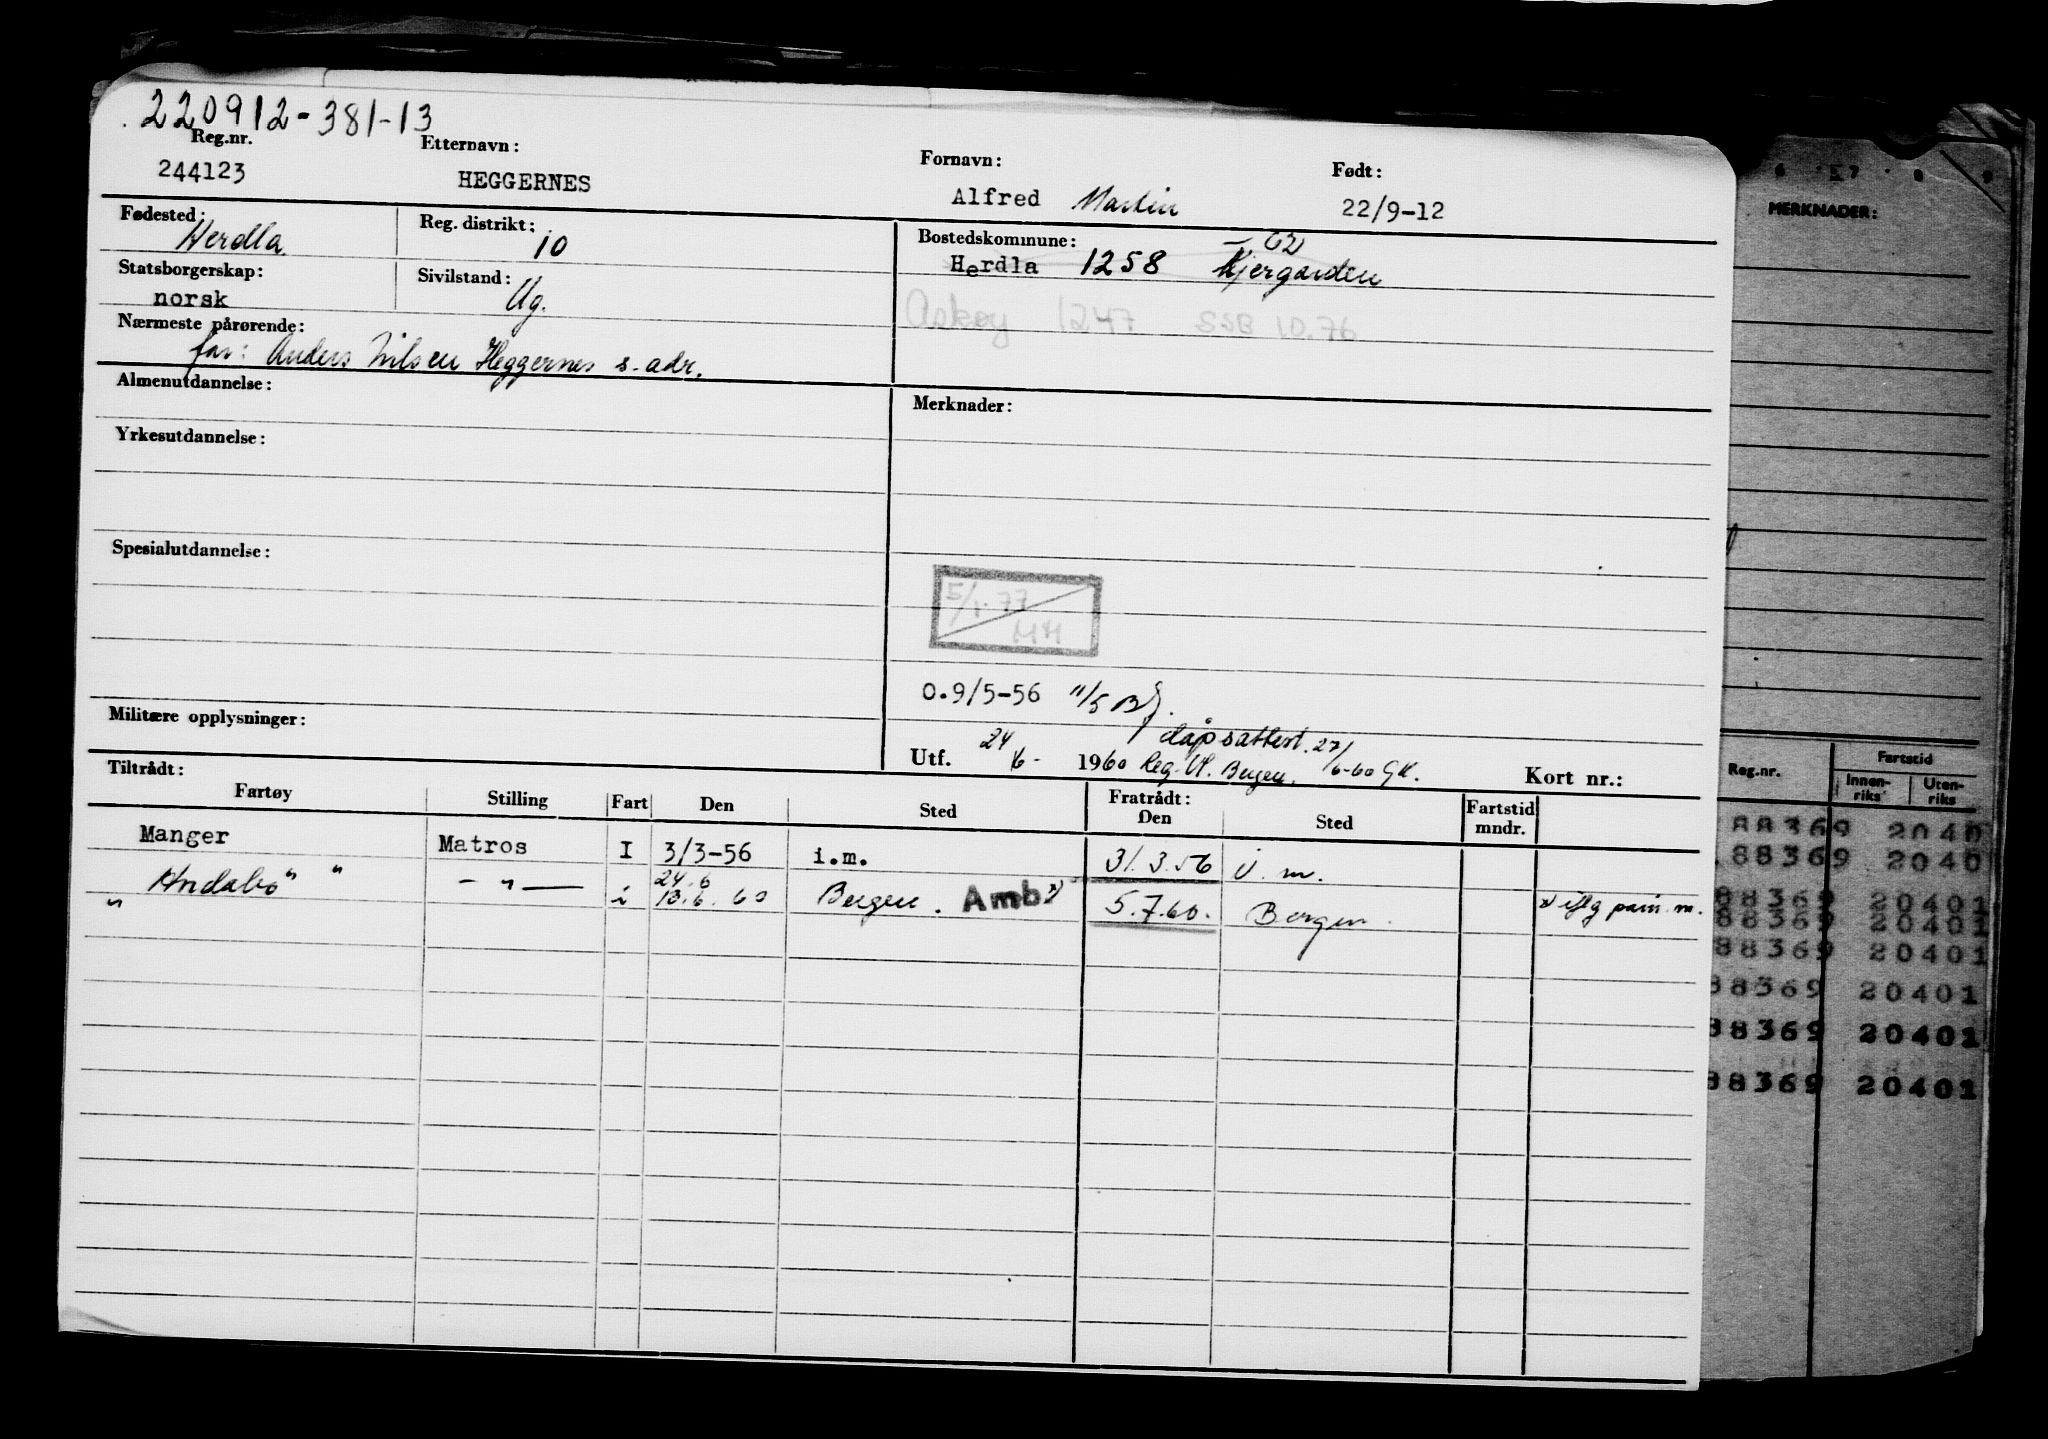 220912-381-13
Reg.nr. Etternavn: Fornavn: Født:
244123 HEGGERNES Alfred Martin 22/9-12
Fødested: Herdla Reg. distrikt: 10 Bostedskommune:
Herdla 1258
Statsborgerskap: norsk Sivilstand: Ug.
Askøy 1247 SSB 10.76
Nærmeste pårørende:
far: Anders Nilsen Heggernes s. adr.
Almenutdannelse: Merknader:
Yrkesutdannelse:
Spesialutdannelse:
5/1.77
MH
0.9/5-56 11/5
Militære opplysninger:
dåpsattest. 27/6-60 GK.
Utf. 24/6- 1960 Bergen. Kort nr.:
Tiltrådt: Fratrådt:
Fartøy Stilling Fart Den Sted Den Sted Fartstid mndr.
Manger Matros I 3/3-56 i.m. 31.3.56 u.m.
" Andabo " " - " - i 24.6 13.6.60 Bergen. Amb x) 5.7.60. Bergen.
MERKNADER:
Reg.nr. Fartstid
Innen-riks Uten-riks
88369 2040
88369 2040
88369 20401
88369 20401
88369 20401
88369 20401
88369 20401
88369 20401